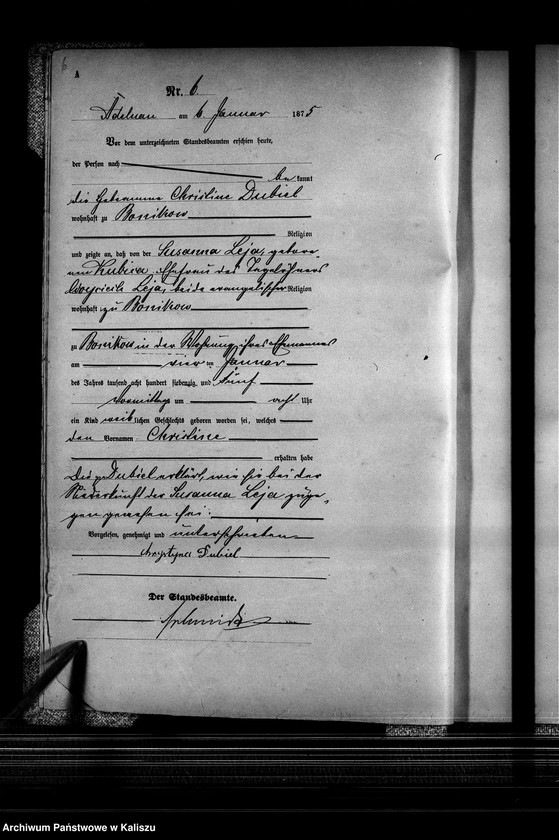 6
A
Nr. 6
Adelnau am 6 Januar 1875
Vor dem unterzeichneten Standesbeamten erschien heute,
der Person nach
bekannt
die Hebeamme Christine Dubiel
wohnhaft zu Bonikow
Religion
und zeigte an, daß von der Susanna Leja, gebore-
nen Kubica, Ehefrau des Tagelöhners
Leja, beide evangelischer Religion
wohnhaft zu Bonikow
zu Bonikow in der Wohnung ihres Ehemannes
am vier ten Januar
des Jahres tausend acht hundert siebenzig und fünf
Vormittags um acht Uhr
ein Kind weiblichen Geschlechts geboren worden sei, welches
den Vornamen Christine
erhalten habe
Die Dubiel erklärt, wie sie bei der
Niederkunft der Susanna Leja zuge-
gen gewesen sei.
Vorgelesen, genehmigt und unterschrieben
Krystyna Dubiel
Der Standesbeamte.
Archiwum Państwowe w Kaliszu